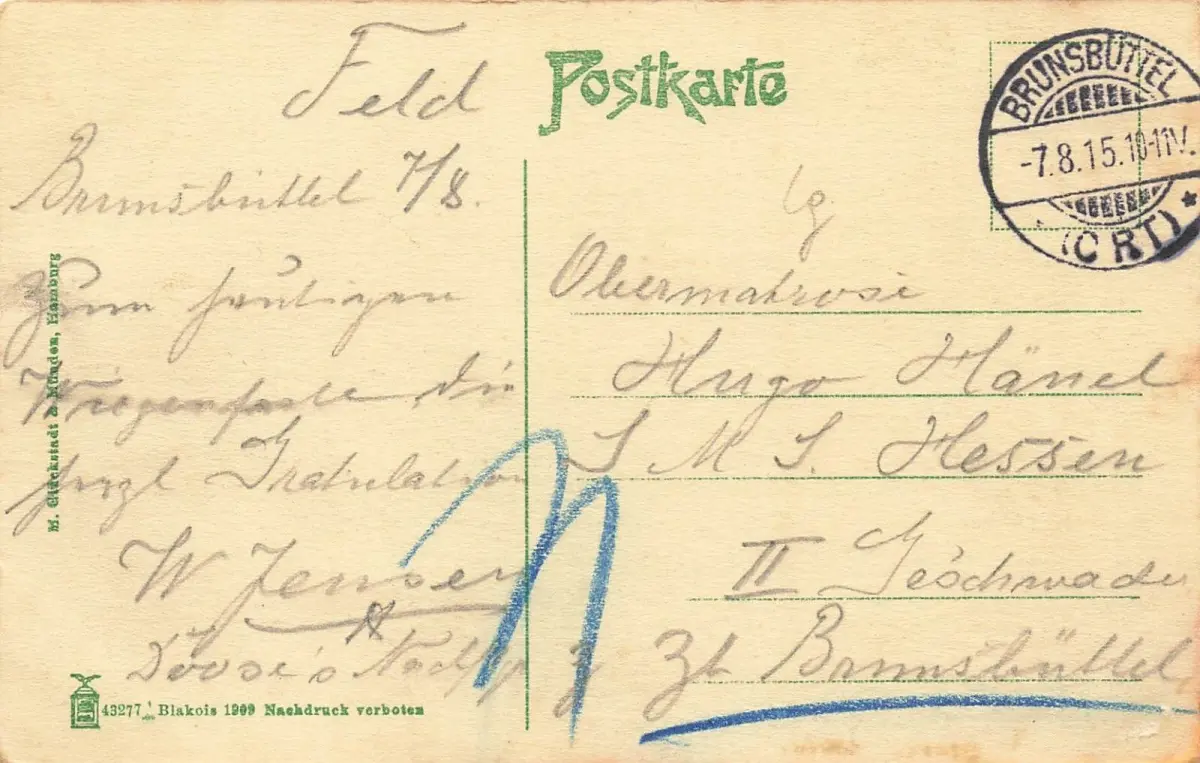 Feld
Postkarte
BRUNSBÜTTEL
-7.8.15.10-11V.
* (ORT) *
Brunsbüttel 7/8.
Zum heutigen
Wiegenfeste die
herzl Gratulation
W Jensen
Doose's Nachfg
Obermatrose
Hugo Hänel
S M S. Hessen
II Geschwader
Zt Brunsbüttel
M. Glückstadt & Münden, Hamburg
43277 Blakois 1909 Nachdruck verboten